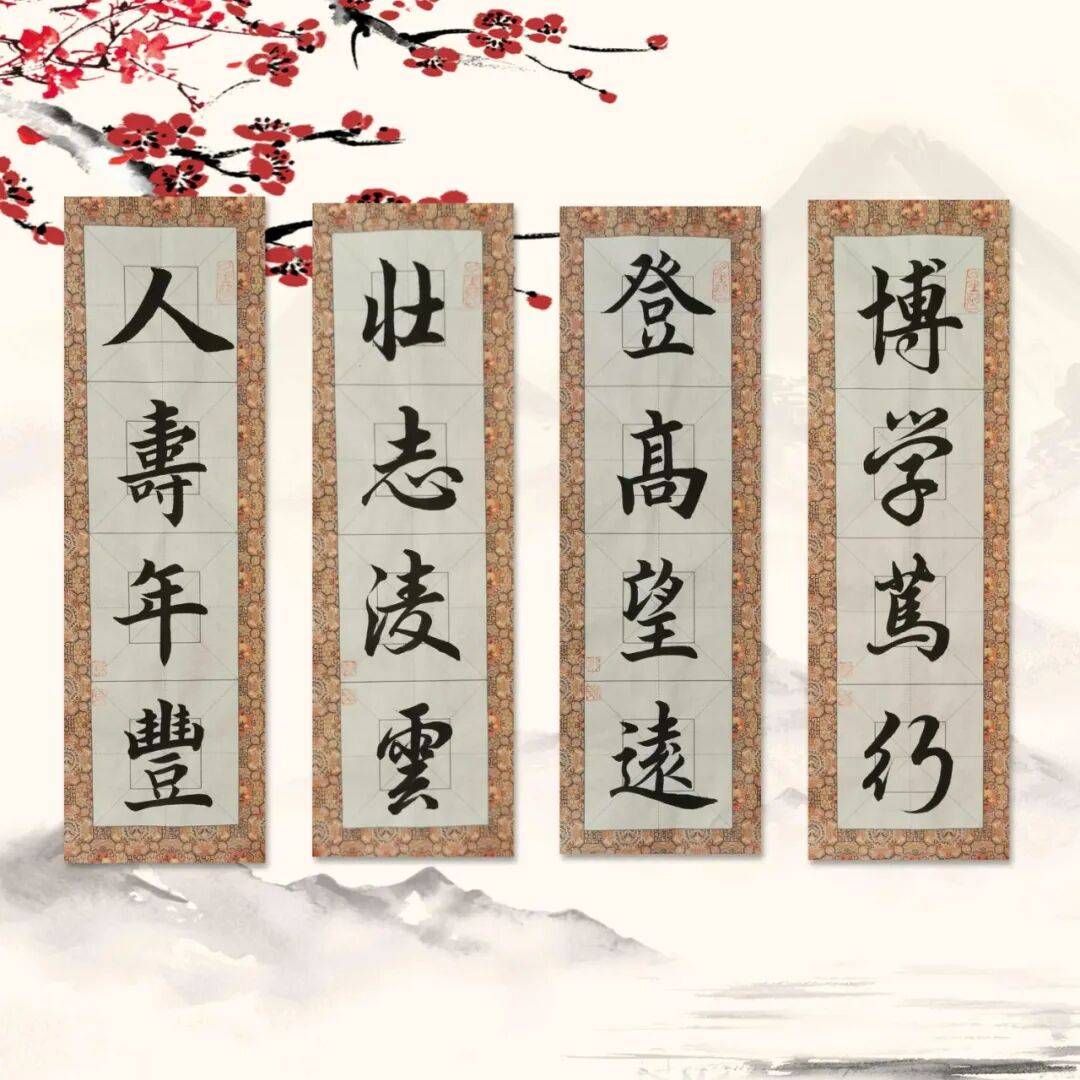 博学篤行
登髙望遠
壮志淩雲
人壽年豐